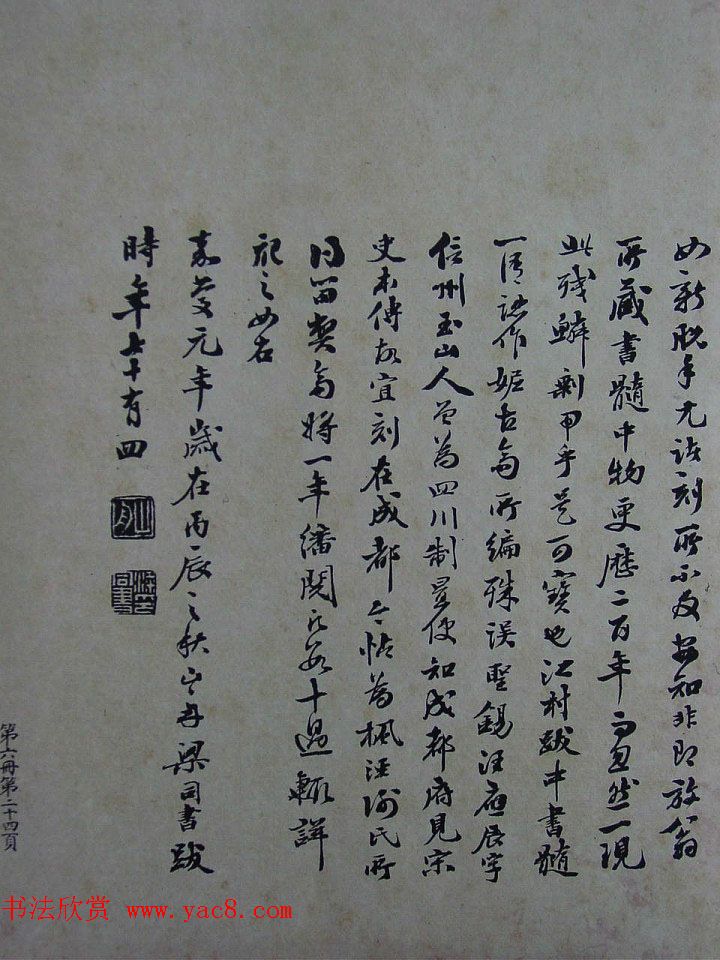 如新脱手尤諸刻所不及安知非即放翁
所藏書髓中物更歷二百年而忽然一現
此殘鱗剩甲乎是可寶也江村跋中書髓
一訛作姬古所編殊誤聖錫汪應辰字
信州玉山人曾為四川制置使知成都府見宋
史本傳故宜刻在成都今帖為楓涇謝氏所
留契將一年繙閱凡數十過輒詳
記之如右
嘉慶元年歲在丙辰之秋山舟梁同書跋
時年七十有四
第六冊第二十四頁
书法欣赏 www.yac8.com